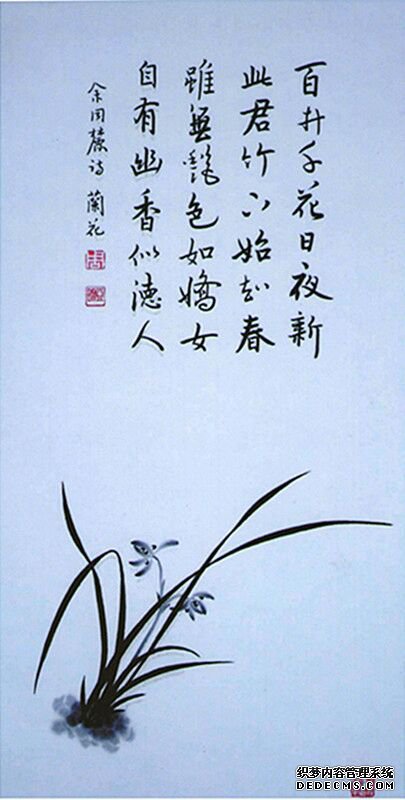 百卉千花日夜新
此君竹下始知春
雖無艷色如嬌女
自有幽香似德人
余同麓詩 蘭花
织梦内容管理系统
DEDECMS.COM